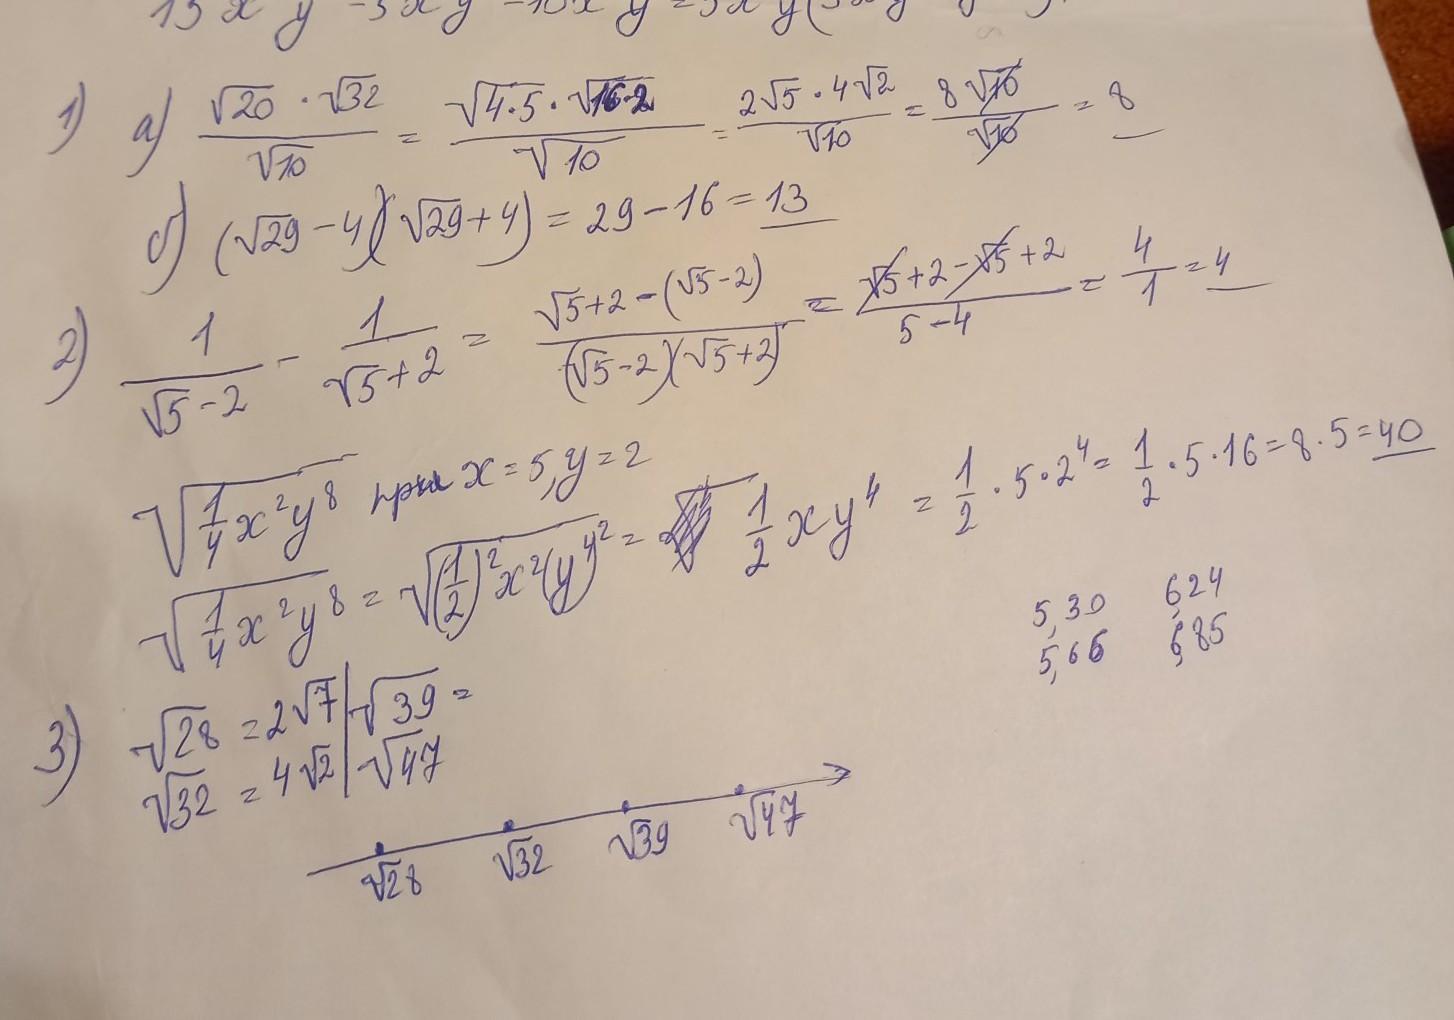 1) а) √20 · √32 / √10 = √4·5 · √16·2 / √10 = 2√5 · 4√2 / √10 = 8√10 / √10 = 8
б) (√29 - 4)(√29 + 4) = 29 - 16 = 13
2) 1 / √5 - 2 - 1 / √5 + 2 = √5 + 2 - (√5 - 2) / (√5 - 2)(√5 + 2) = √5 + 2 - √5 + 2 / 5 - 4 = 4 / 1 = 4
√1/4 x²y⁸ при x = 5, y = 2
√1/4 x²y⁸ = √(1/2)² x² (y⁴)² = 1/2 x y⁴ = 1/2 · 5 · 2⁴ = 1/2 · 5 · 16 = 8 · 5 = 40
5,30 6,24
5,66 6,85
3) √28 = 2√7 | √39 =
√32 = 4√2 | √47
√28 √32 √39 √47